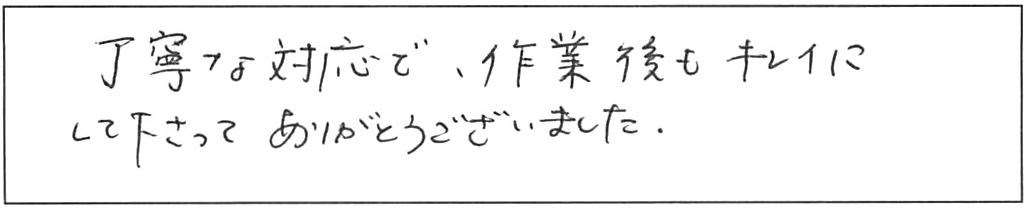 丁寧な対応で、作業後もキレイに
して下さって ありがとうございました.